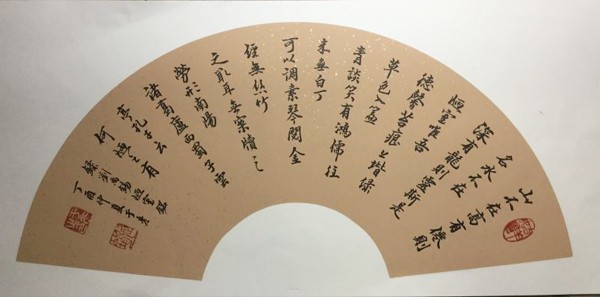 山不在高有僊則
名水不在
深有龍則靈斯是
陋室惟吾
德馨苔痕上堦绿
草色入簾
青談笑有鴻儒往
来無白丁
可以调素琴閲金
经無丝竹
之乱耳無案牍之
勞形南陽
諸葛廬西蜀子雲
亭孔子云
何陋之有
錄劉禹錫陋室銘
丁酉仲夏